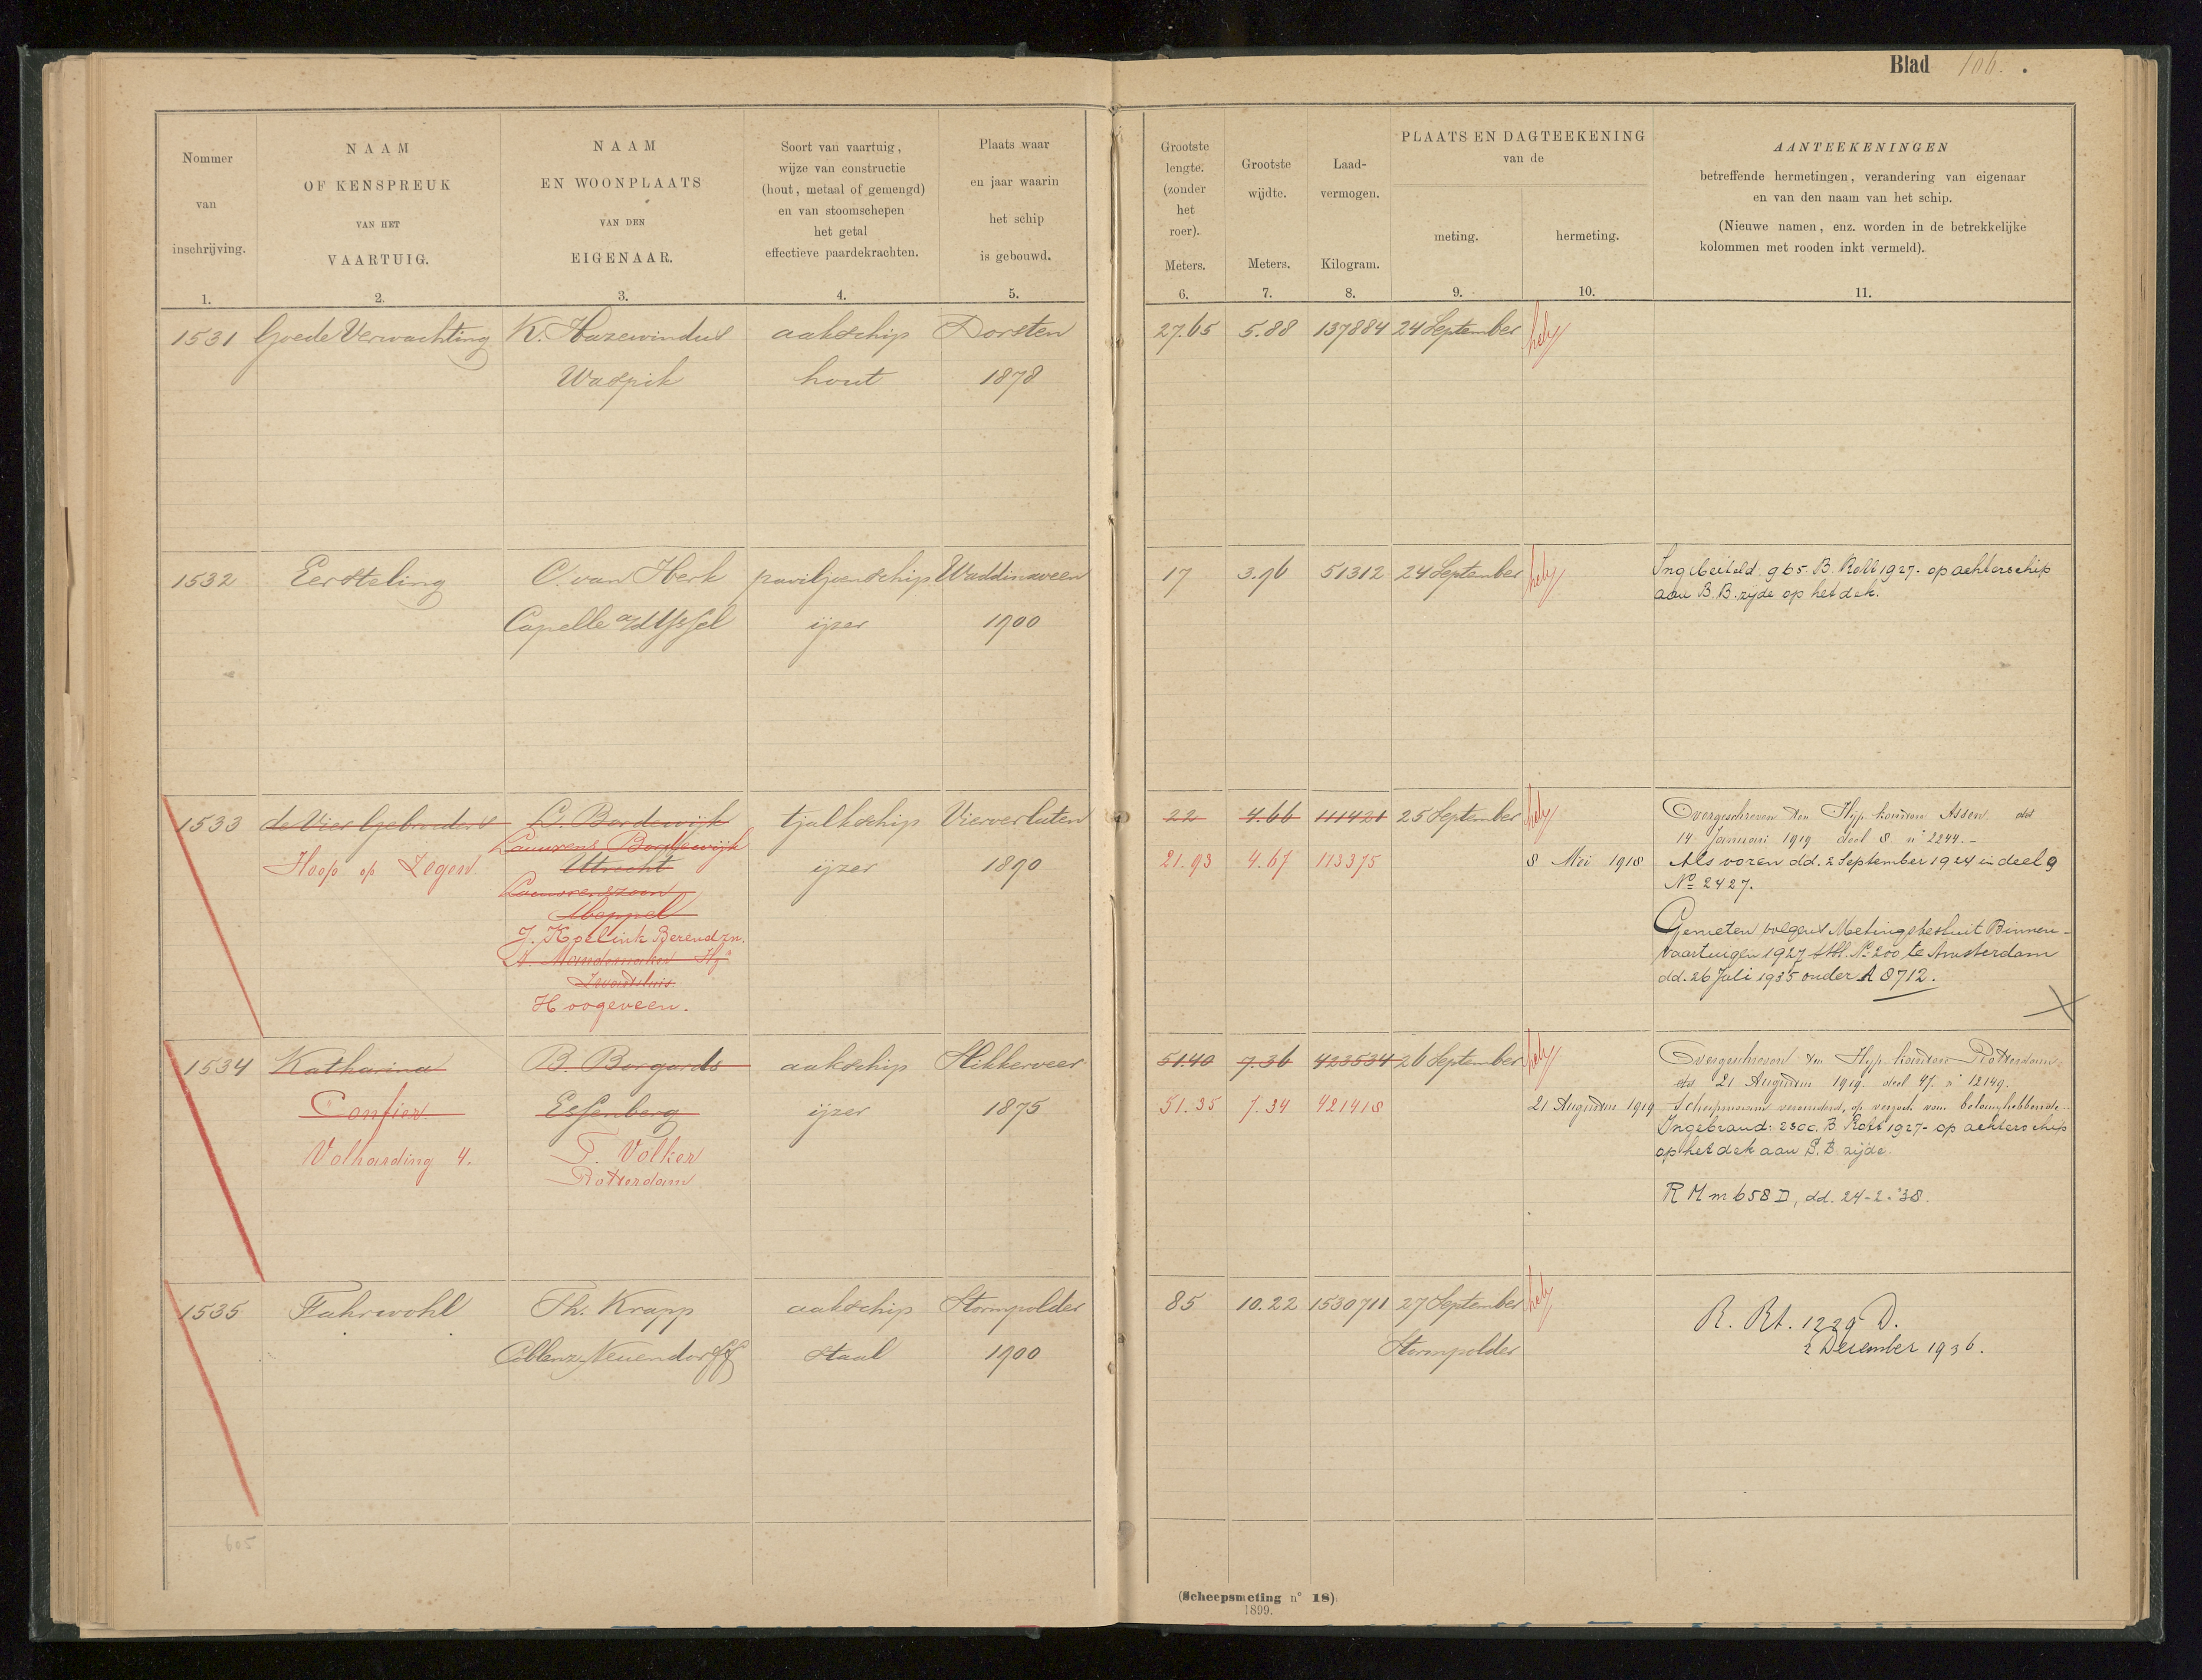 Blad 106.
Nommer
van
inschrijving.
1.
NAAM
OF KENSPREUK
VAN HET
VAARTUIG.
2.
NAAM
EN WOONPLAATS
VAN DEN
EIGENAAR.
3.
Soort van vaartuig,
wijze van constructie
(hout, metaal of gemengd)
en van stoomschepen
het getal
effectieve paardekrachten.
4.
Plaats waar
en jaar waarin
het schip
is gebouwd.
5.
Grootste
lengte.
(zonder
het
roer).
Meters.
6.
Grootste
wijdte.
Meters.
7.
Laad-
vermogen.
Kilogram.
8.
PLAATS EN DAGTEEKENING
van de
meting.
9.
hermeting.
10.
AANTEEKENINGEN
betreffende hermetingen, verandering van eigenaar
en van den naam van het schip.
(Nieuwe namen, enz. worden in de betrekkelijke
kolommen met rooden inkt vermeld).
11.
1531 Goede Verwachting K. Hazewindus aakschip Dorsten 27.65 5.88 137884 24 September
Waspik hout 1878
1532 Eersteling C. van Herk paviljoenschip Waddinxveen 17 3.96 51312 24 September
Capelle a/d IJssel ijzer 1900
Ingebeiteld. 965. B. Rott 1927. op achterschip
aan B.B. zijde op het dek.
1533 de Vier Gebroeders L. Bordewijk tjalkschip Vierverlaten 22 4.66 111421 25 September
Hoop op Zegen
Laurens Bordewijk
Utrecht ijzer 1890 21.93 4.67 113375 8 Mei 1918
Laurenszoon
Meppel
J. Kpelink Berendzn.
Zwartsluis
Hoogeveen.
Overgeschreven ten Hyp. kantore Assen dd
14 Januari 1919 deel 8 n° 2244.-
Als voren dd. 2 September 1924 in deel 9
No 2427.
Gemeten volgens Metingsbesluit Binnen-
vaartuigen 1927 Stbl. No 200 te Amsterdam
dd. 26 Juli 1935 onder A 8712.
1534 Katharina B. Borgards aakschip Slikkerveer 51.40 7.36 423534 26 September
Confier Essenberg ijzer 1875 51.35 7.34 421418 21 Augustus 1919
Volharding 4. T. Volker
Rotterdam
Overgeschreven ten Hyp. kantore Rotterdam
dd 21 Augustus 1919. deel 47. n° 12149.
Scheepsnaam veranderd, op verzoek van belanghebbende.
Ingebrand: 2300. B Rott 1927- op achterschip
op het dek aan S.B. zijde.
R M m 658 D, dd. 24-2-'38.
1535 Fahrwohl Th. Krapp aakschip Stormpolder 85 10.22 1530711 27 September
Coblenz Neuendorff staal 1900 Stormpolder
R. Rt. 1229 D.
2 December 1936.
605
(Scheepsmeting n° 18).
1899.